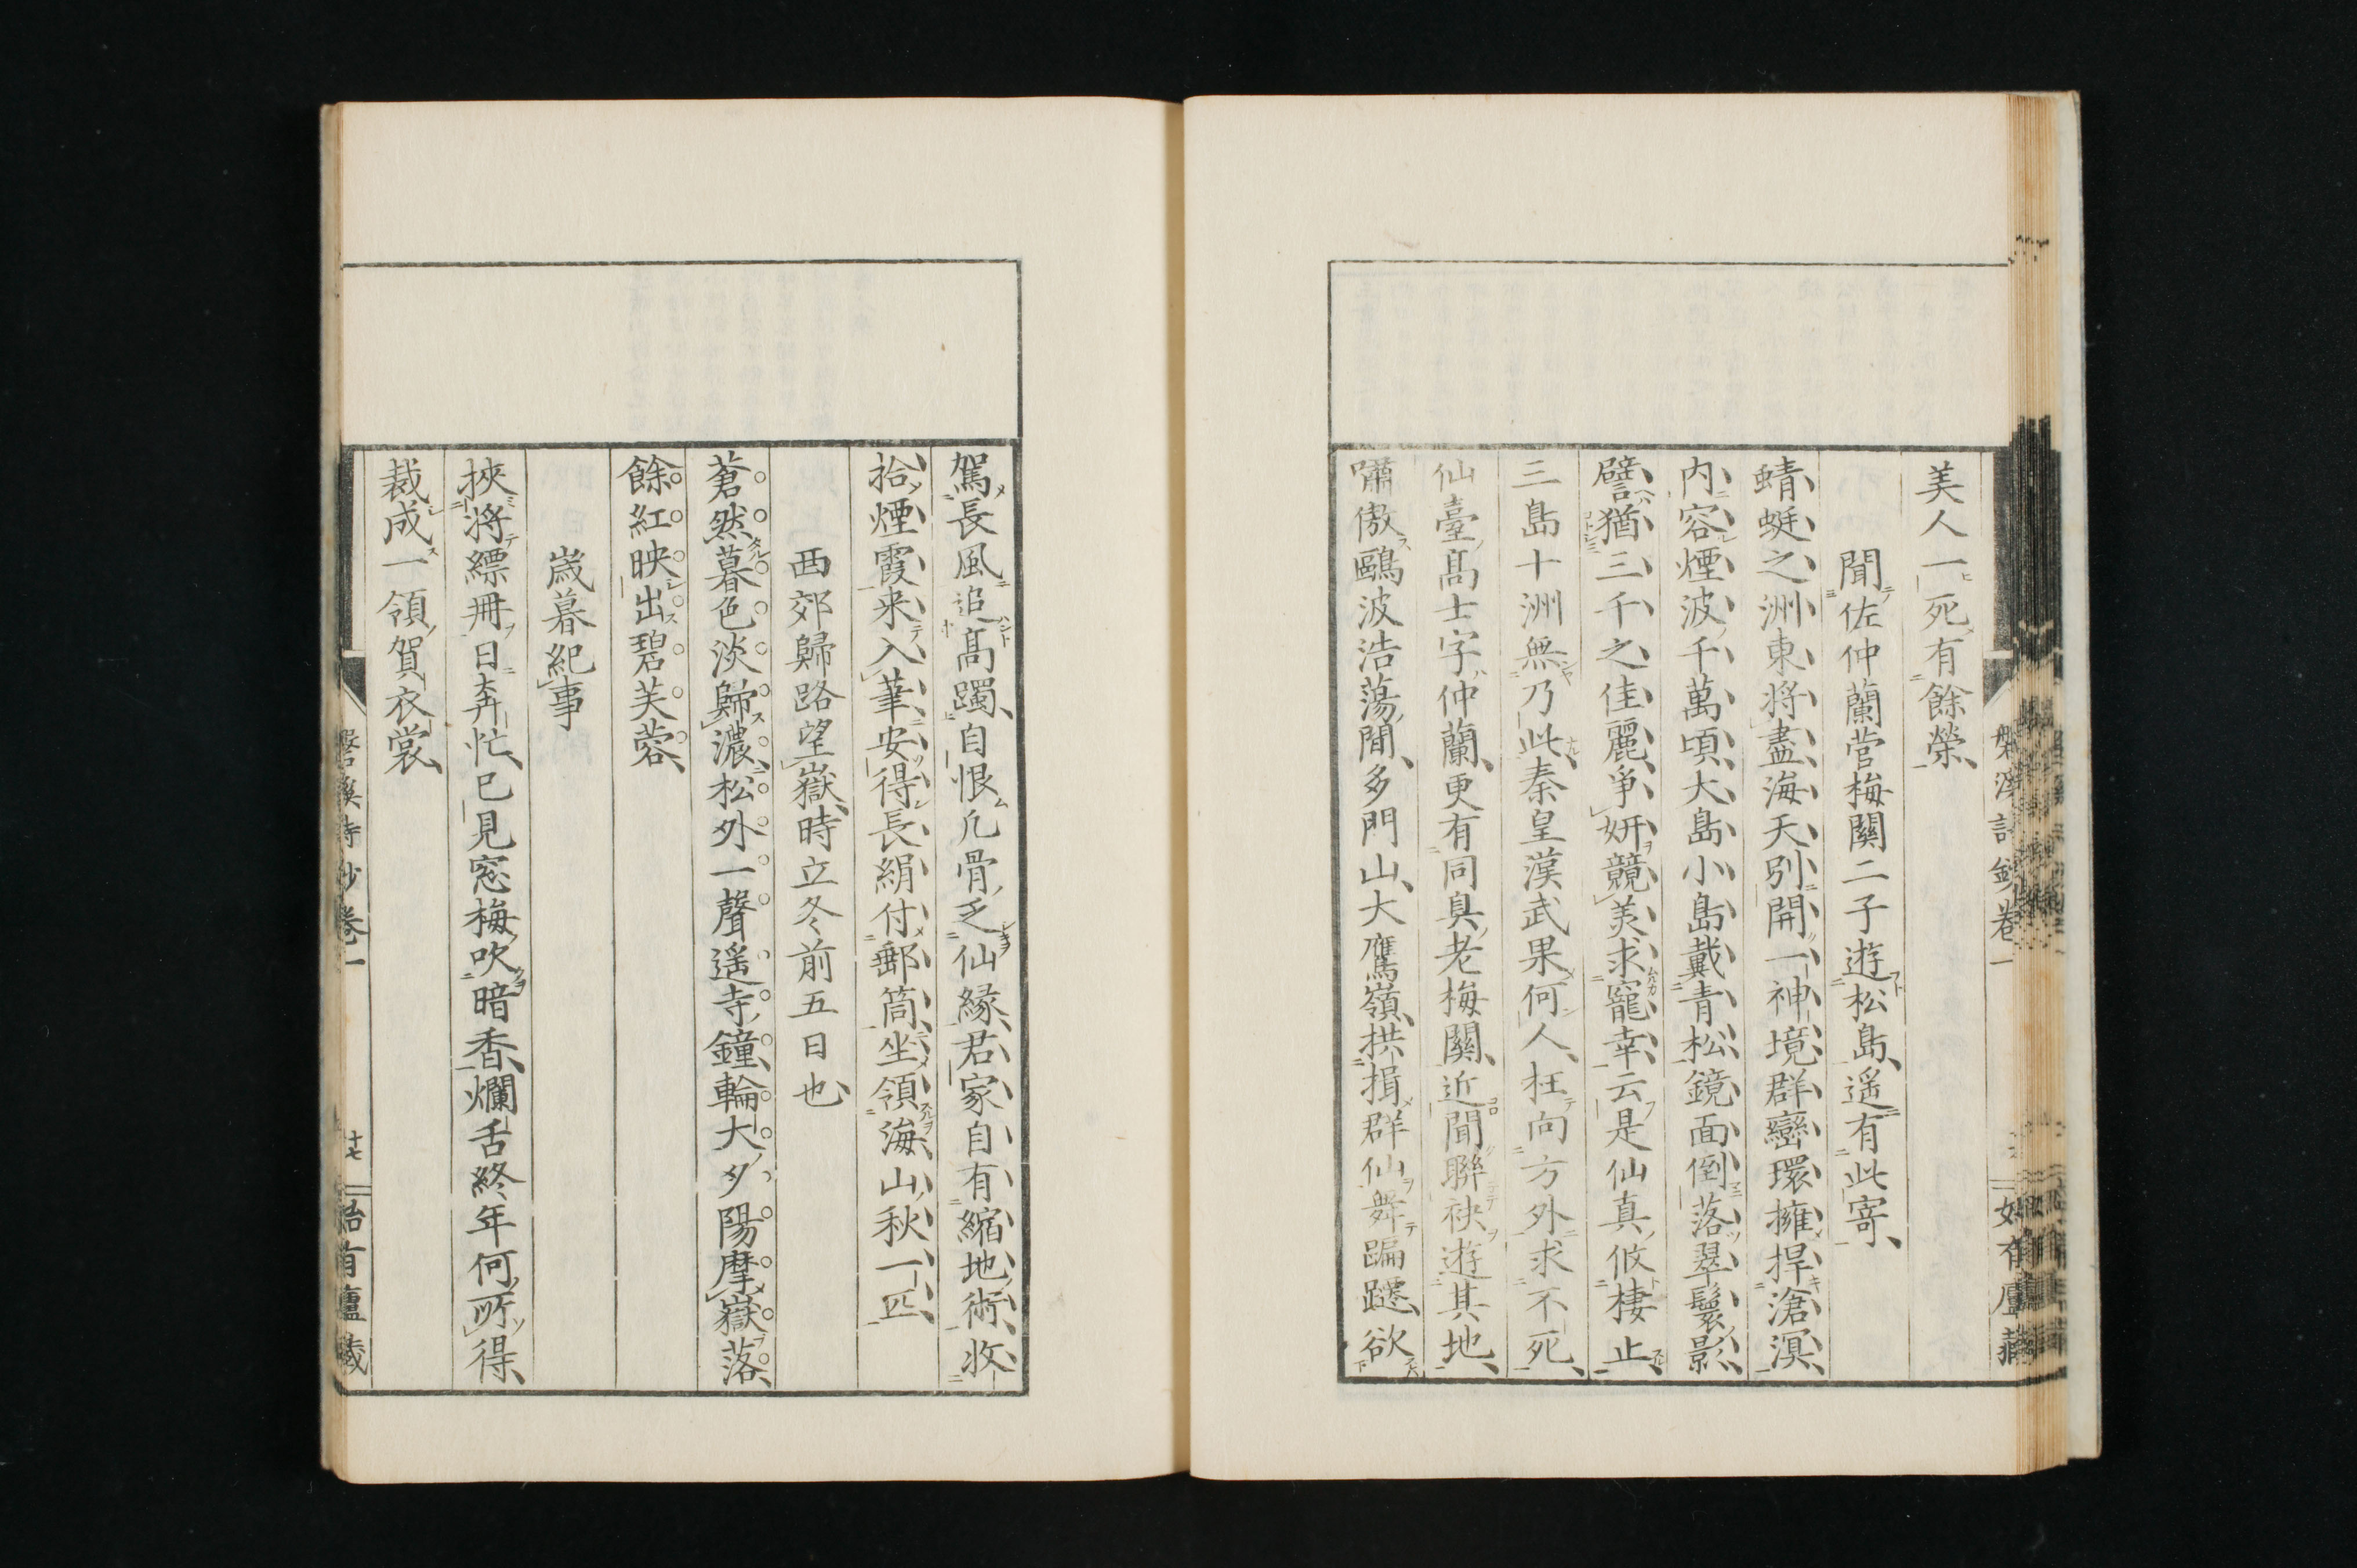 美人一死有餘榮
聞佐仲蘭菅梅關二子遊松島遥有此寄
蜻蜓之洲東将盡海天別開一神境群巒環擁捍滄溟
内容煙波千萬頃大島小島戴青松鏡面倒落翠鬟影
譬猶三千之佳麗爭妍競美求寵幸云是仙真攸棲止
三島十洲無乃此秦皇漢武果何人枉向方外求不死
仙臺髙士字仲蘭更有同臭老梅關近聞聯袂遊其地
嘯傲鷗波浩蕩間多門山大鷹嶺拱揖群仙舞蹁躚欲
駕長風追髙躅自恨凡骨乏仙縁君家自有縮地術收
拾煙霞来入筆安得長絹付郵筒坐領海山秋一匹
西郊歸路望嶽時立冬前五日也
蒼然暮色淡歸濃松外一聲遥寺鐘輪大夕陽摩嶽落
餘紅映出碧芙蓉
歳暮紀事
挾将縹冊日奔忙已見窓梅吹暗香爛舌終年何所得
裁成一領賀衣裳
磐溪詩鈔卷一